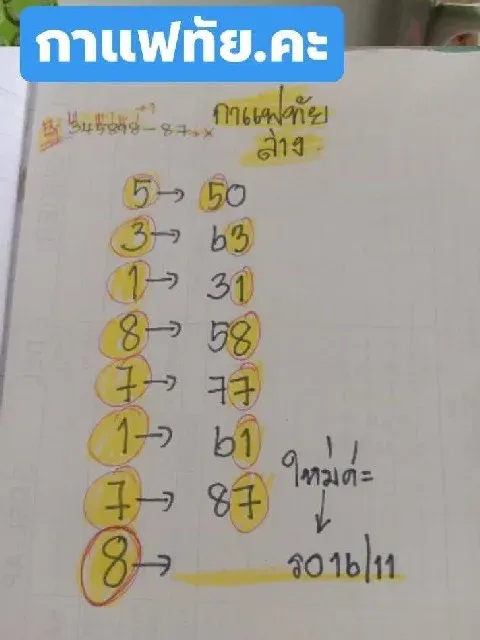 กาแฟทัย.คะ
345898-87→x
กาแฟทัย
ล่าง
5→ 50
3→ 63
1→ 31
8→ 58
7→ 77
1→ 61
7→ 87
ใหม่ค่ะ
↓
8→ รอ16/11